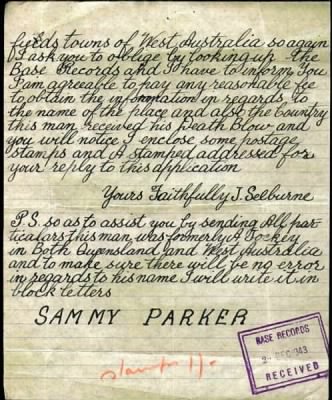 fields towns of West Australia so again
I ask you to oblige by looking up The
Base Records and I have to inform You
I am agreeable to pay any reasonable fee
to obtain the information in regards to
the name of the place and also the Country
this man received his Death Blow and
you will notice I enclose some postage
stamps and A stamped addressed for
your reply to this application
Yours Faithfully J. Selburne
P.S. so as to assist you by sending All par
ticulars this man was formerly A Jockey
in Both Queensland and West Australia
and to make sure there will be no error
in regards to his name I will write it in
block letters
SAMMY PARKER
BASE RECORDS
DEC 1943
RECEIVED